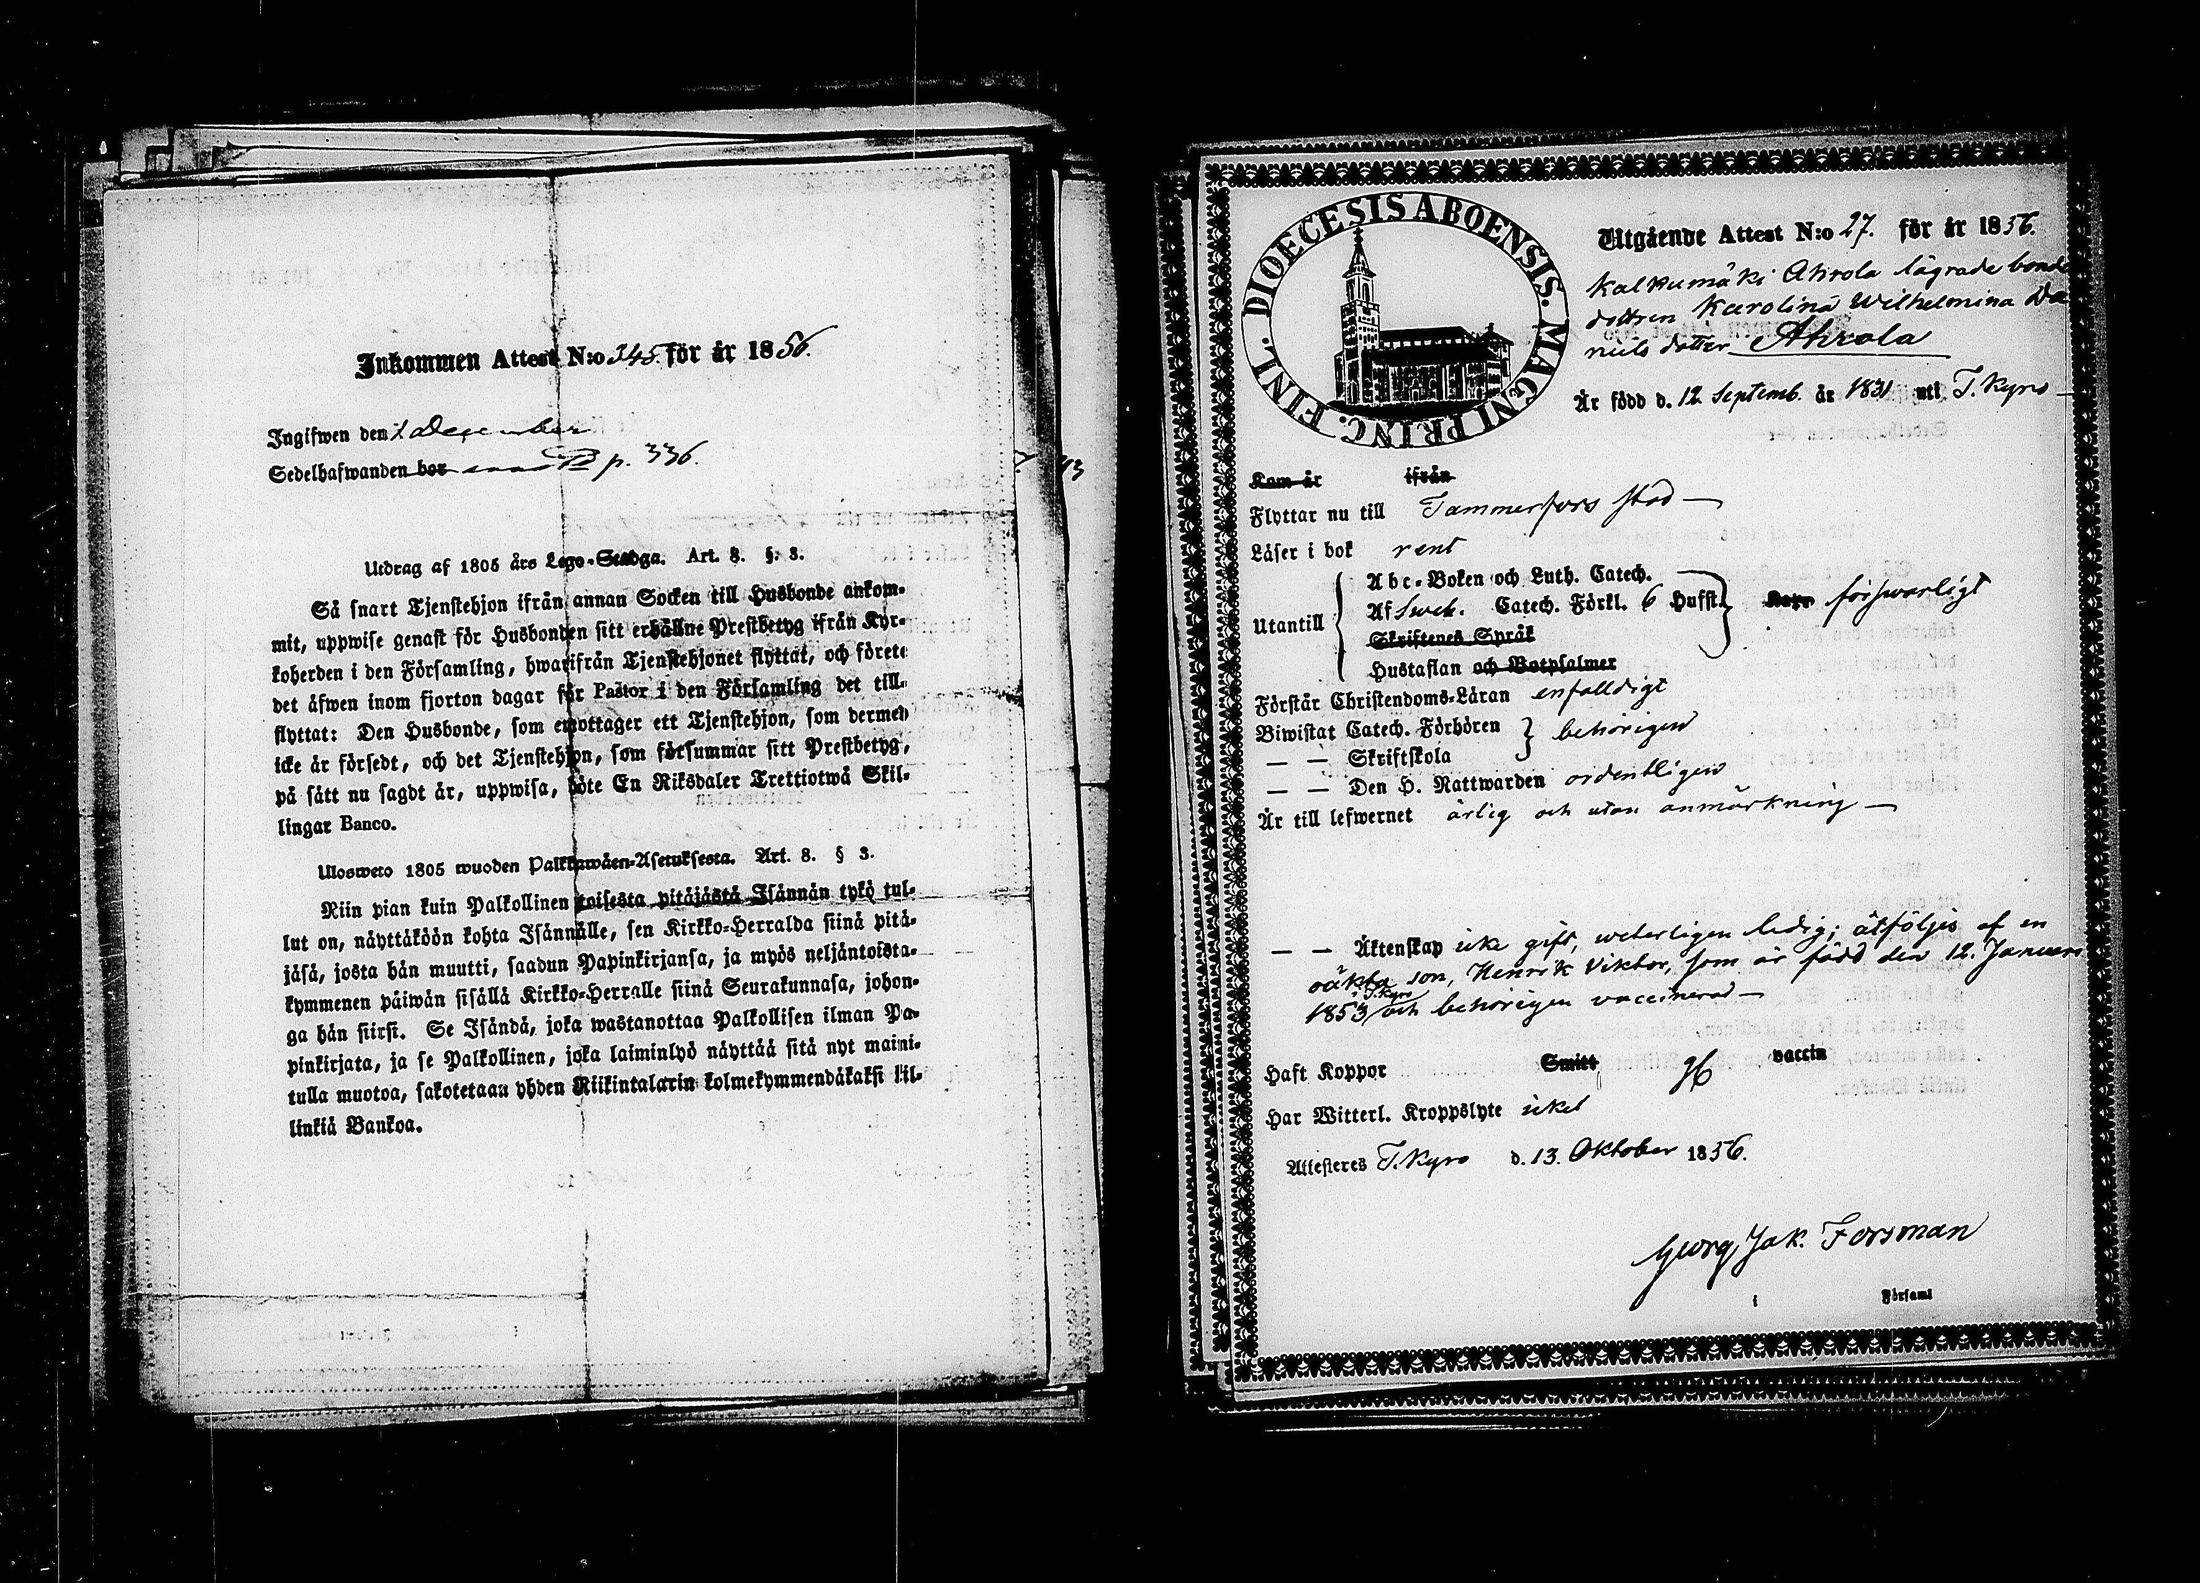 Inkommen Attest N:o 345. för år 1856.
Ingifwen den 1 December
Sedelhafwanden bor p. 336.
Utdrag af 1805 års Lego-Stadga. Art. 8. §. 3.
Så snart Tjenstehjon ifrån annan Socken till Husbonde ankom-
mit, uppwise genast för Husbonden sitt erhållne Prestbetyg ifrån Kyr-
koherden i den Församling, hwarifrån Tjenstehjonet flyttat, och förete
det äfwen inom fjorton dagar för Pastor i den Församling det till-
flyttat: Den Husbonde, som emottager ett Tjenstehjon, som dermed
icke är försedt, och det Tjenstehjon, som försummar sitt Prestbetyg,
på sätt nu sagdt är, uppwisa, böte En Riksdaler Trettiotwå Skil-
lingar Banco.
Ulosweto 1805 wuoden Palkkawäen-Asetuksesta. Art. 8. § 3.
Niin pian kuin Palkollinen toisesta pitäjästä Isännän tykö tul-
lut on, näyttäköön kohta Isännälle, sen Kirkko-Herralda siinä pitä-
jäsä, josta hän muutti, saadun Papinkirjansa, ja myös neljäntoista-
kymmenen päiwän sisällä Kirkko-Herralle siinä Seurakunnasa, johon-
ga hän siirsi. Se Isändä, joka wastanottaa Palkollisen ilman Pa-
pinkirjata, ja se Palkollinen, joka laiminlyö näyttää sitä nyt maini-
tulla muotoa, sakotetaan yhden Riikintalarin kolmekymmendäkaksi kil-
linkiä Bankoa.
DIOECESIS ABOENSIS. MAGNI PRINC. FINL.
Utgående Attest N:o 27. för år 1856.
Kalkumäki Ahrola lägrade bonde
dottren Karolina Wilhelmina Da
niels dotter Ahrola
Är född d. 12. Septemb. år 1831 uti T. Kyro
Kom år ifrån
Flyttar nu till Tammerfors stad
Läser i bok rent
Utantill
Abc-Boken och Luth. Catech.
Af Sweb. Catech. Förkl. 6 Hufst. försvarligt
Skriftenes Språk
Hustaflan och Botpsalmer
Förstår Christendoms-Läran enfalldigt
Biwistat Catech. Förhören behörigen
— — Skriftskola
— — Den H. Nattwarden ordentligen
Är till lefwernet ärlig och utan anmärkning
— — Äktenskap icke gift, weterligen ledig; åtföljes af en
oäkta son, Henrik Viktor, som är född den 12. Januari
1853 i T. Kyro och behörigen vaccinerad
Haft Koppor Smitt vaccin
Har Witterl. Kroppslyte icke
Attesteres T. Kyro d. 13. Oktober 1856.
Georg Jak. Forsman
i Församl